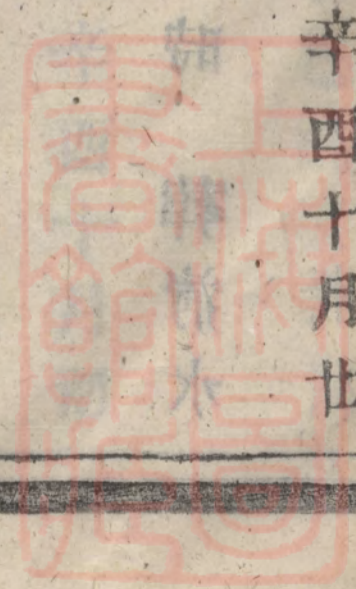 辛酉十月廿
上海圖
書館藏